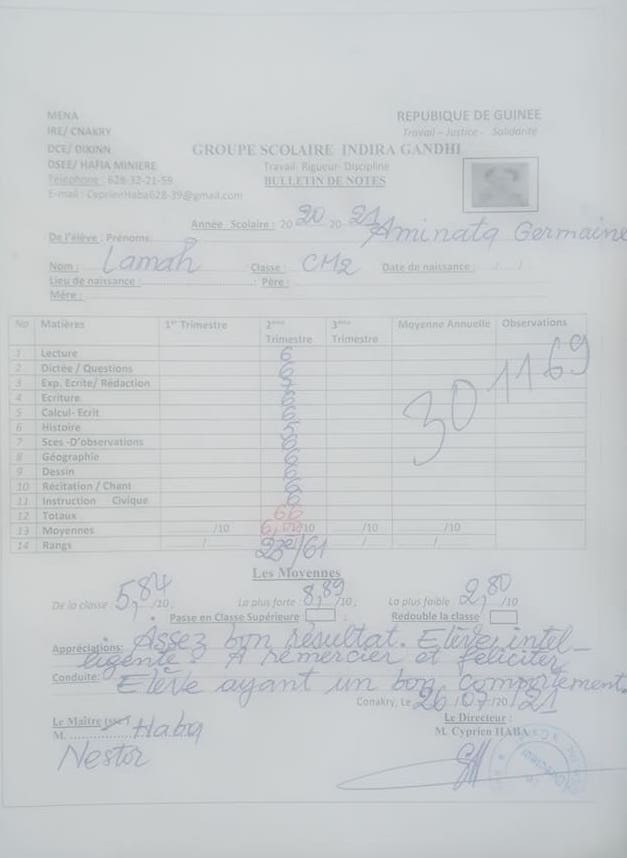 MENA
REPUBLIQUE DE GUINEE
IRE/ CNAKRY
Travail – Justice - Solidarité
DCE/ DIXINN
GROUPE SCOLAIRE INDIRA GANDHI
DSEE/ HAFIA MINIERE
Travail- Rigueur- Discipline
Téléphone : 628-32-21-59
BULLETIN DE NOTES
E-mail : CyprienHaba628-39@gmail.com
Année Scolaire : 20 20 20 21
De l'élève : Prénoms: Aminata Germaine
Nom : Lamah Classe : CM2 Date de naissance :
Lieu de naissance : Père :
Mère :
No Matières 1er Trimestre 2ème Trimestre 3ème Trimestre Moyenne Annuelle Observations
1 Lecture 6
2 Dictée / Questions 6
3 Exp. Ecrite/ Rédaction
4 Ecriture 6
5 Calcul- Ecrit 6
6 Histoire 5
7 Sces -D'observations 6
8 Géographie 6
9 Dessin 6
10 Récitation / Chant 6
11 Instruction Civique 6
12 Totaux 66
13 Moyennes /10 6, /10 /10 /10
14 Rangs / /61 / /
301169
Les Moyennes
De la classe 5,84 /10 ; La plus forte 8,89 /10 ; La plus faible 2,80 /10
Passe en Classe Supérieure : Redouble la classe
Appréciations: Assez bon résultat. Elève intel-
ligente. A remercier et féliciter
Conduite: Elève ayant un bon comportement.
Conakry, Le 26 /07 /20 21
Le Maître (sse) Le Directeur :
M. Haba M. Cyprien HABA
Nestor